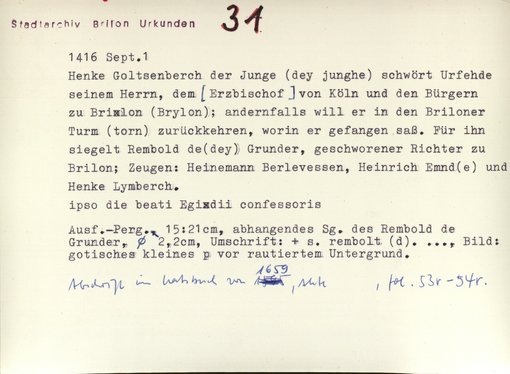 Stadtarchiv Brilon Urkunden
31
1416 Sept.1
Henke Goltsenberch der Junge (dey junghe) schwört Urfehde
seinem Herrn, dem [Erzbischof] von Köln und den Bürgern
zu Brixlon (Brylon); andernfalls will er in den Briloner
Turm (torn) zurückkehren, worin er gefangen saß. Für ihn
siegelt Rembold de(dey) Grunder, geschworener Richter zu
Brilon; Zeugen: Heinemann Berlevessen, Heinrich Emnd(e) und
Henke Lymberch.
ipso die beati Egixdii confessoris
Ausf.-Perg., 15:21cm, abhangendes Sg. des Rembold de
Grunder, ø 2,2cm, Umschrift: + s. rembolt (d). ..., Bild:
gotisches kleines p vor rautiertem Untergrund.
1659
Abschrift im von , fol. 53r-54r.